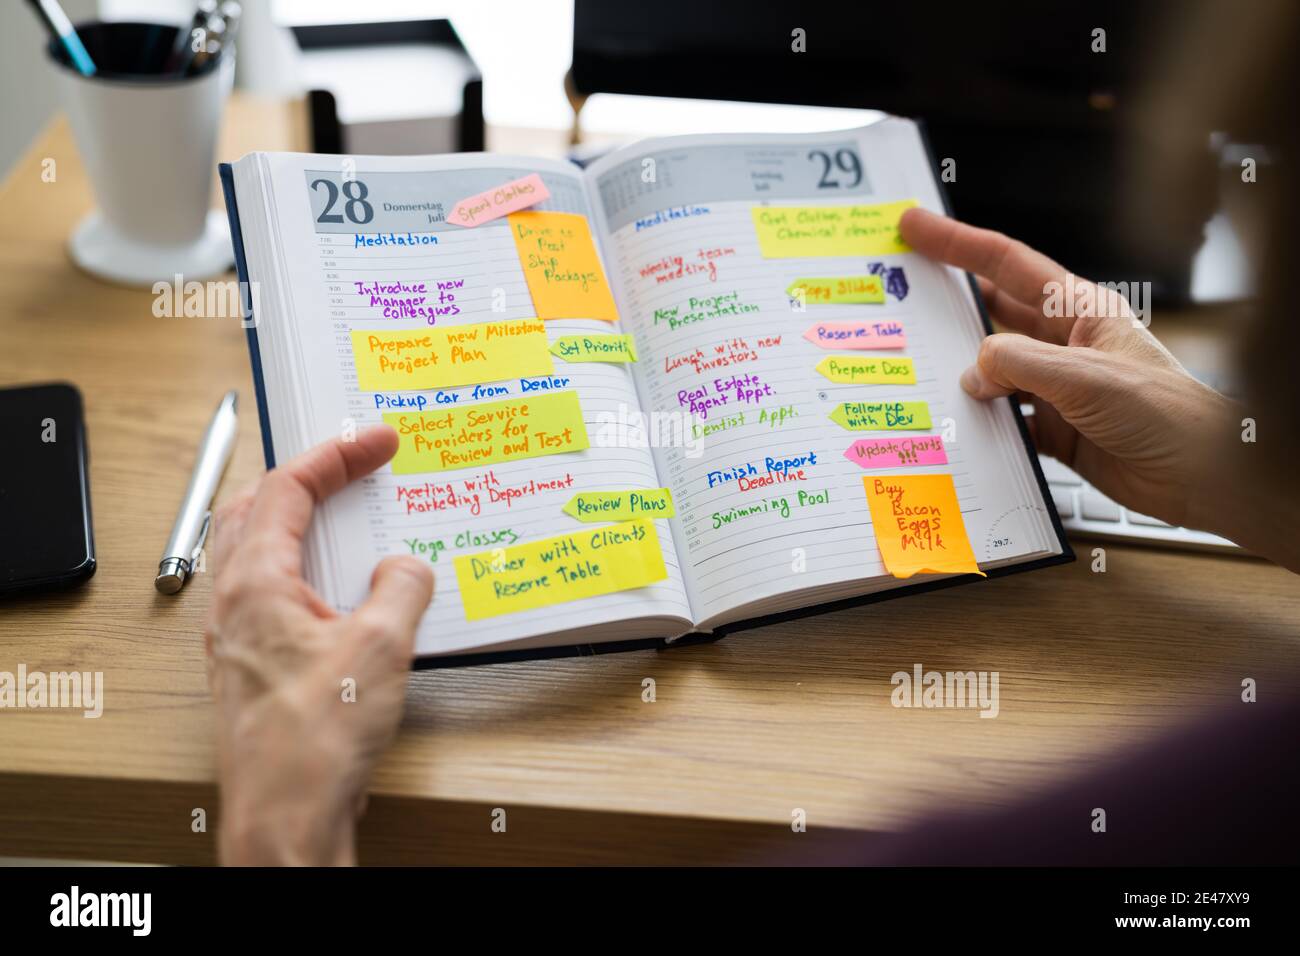 28
Donnerstag
Juli
Sport Clothes
Meditation
Drive to
Post
Ship
Packages
Introduce new
Manager to
colleagues
Prepare new Milestone
Project Plan
Set Prioriti
Pickup Car from Dealer
Select Service
Providers for
Review and Test
Meeting with
Marketing Department
Review Plans
Yoga Classes
Dinner with Clients
Reserve Table
29
Juli
Meditation
Get Clothes from
Chemical cleaning
Weekly team
meeting
Copy Slides
New Project
Presentation
Reserve Table
Lunch with new
Investors
Prepare Docs
Real Estate
Agent Appt.
Follow up
with Dev
Dentist Appt.
Update Charts
!!!
Finish Report
Deadline
Swimming Pool
Buy
Bacon
Eggs
Milk
29.7.
alamy
Image ID: 2E47XY9
www.alamy.com